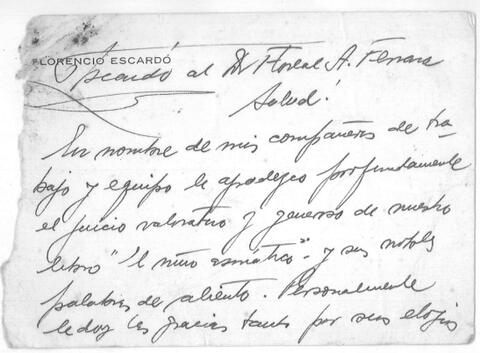 FLORENCIO ESCARDÓ
Escardó al Dr Floreal A. Ferrara
Salud!
En nombre de mis compañeros de tra-
bajo y equipo le agradezco profundamente
el juicio valorativo y generoso de nuestro
libro "El niño asmático" y sus notobles
palabras de aliento. Personalmente
le doy las gracias tanto por sus elogios